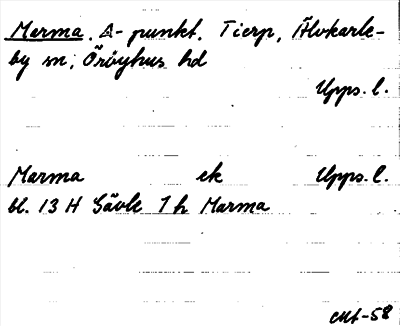 Marma. A-punkt. Tierp, Älvkarle-
by sn; Örbyhus hd
Upps. l.
Marma ek Upps. l.
bl. 13 H Gävle 7 h Marma